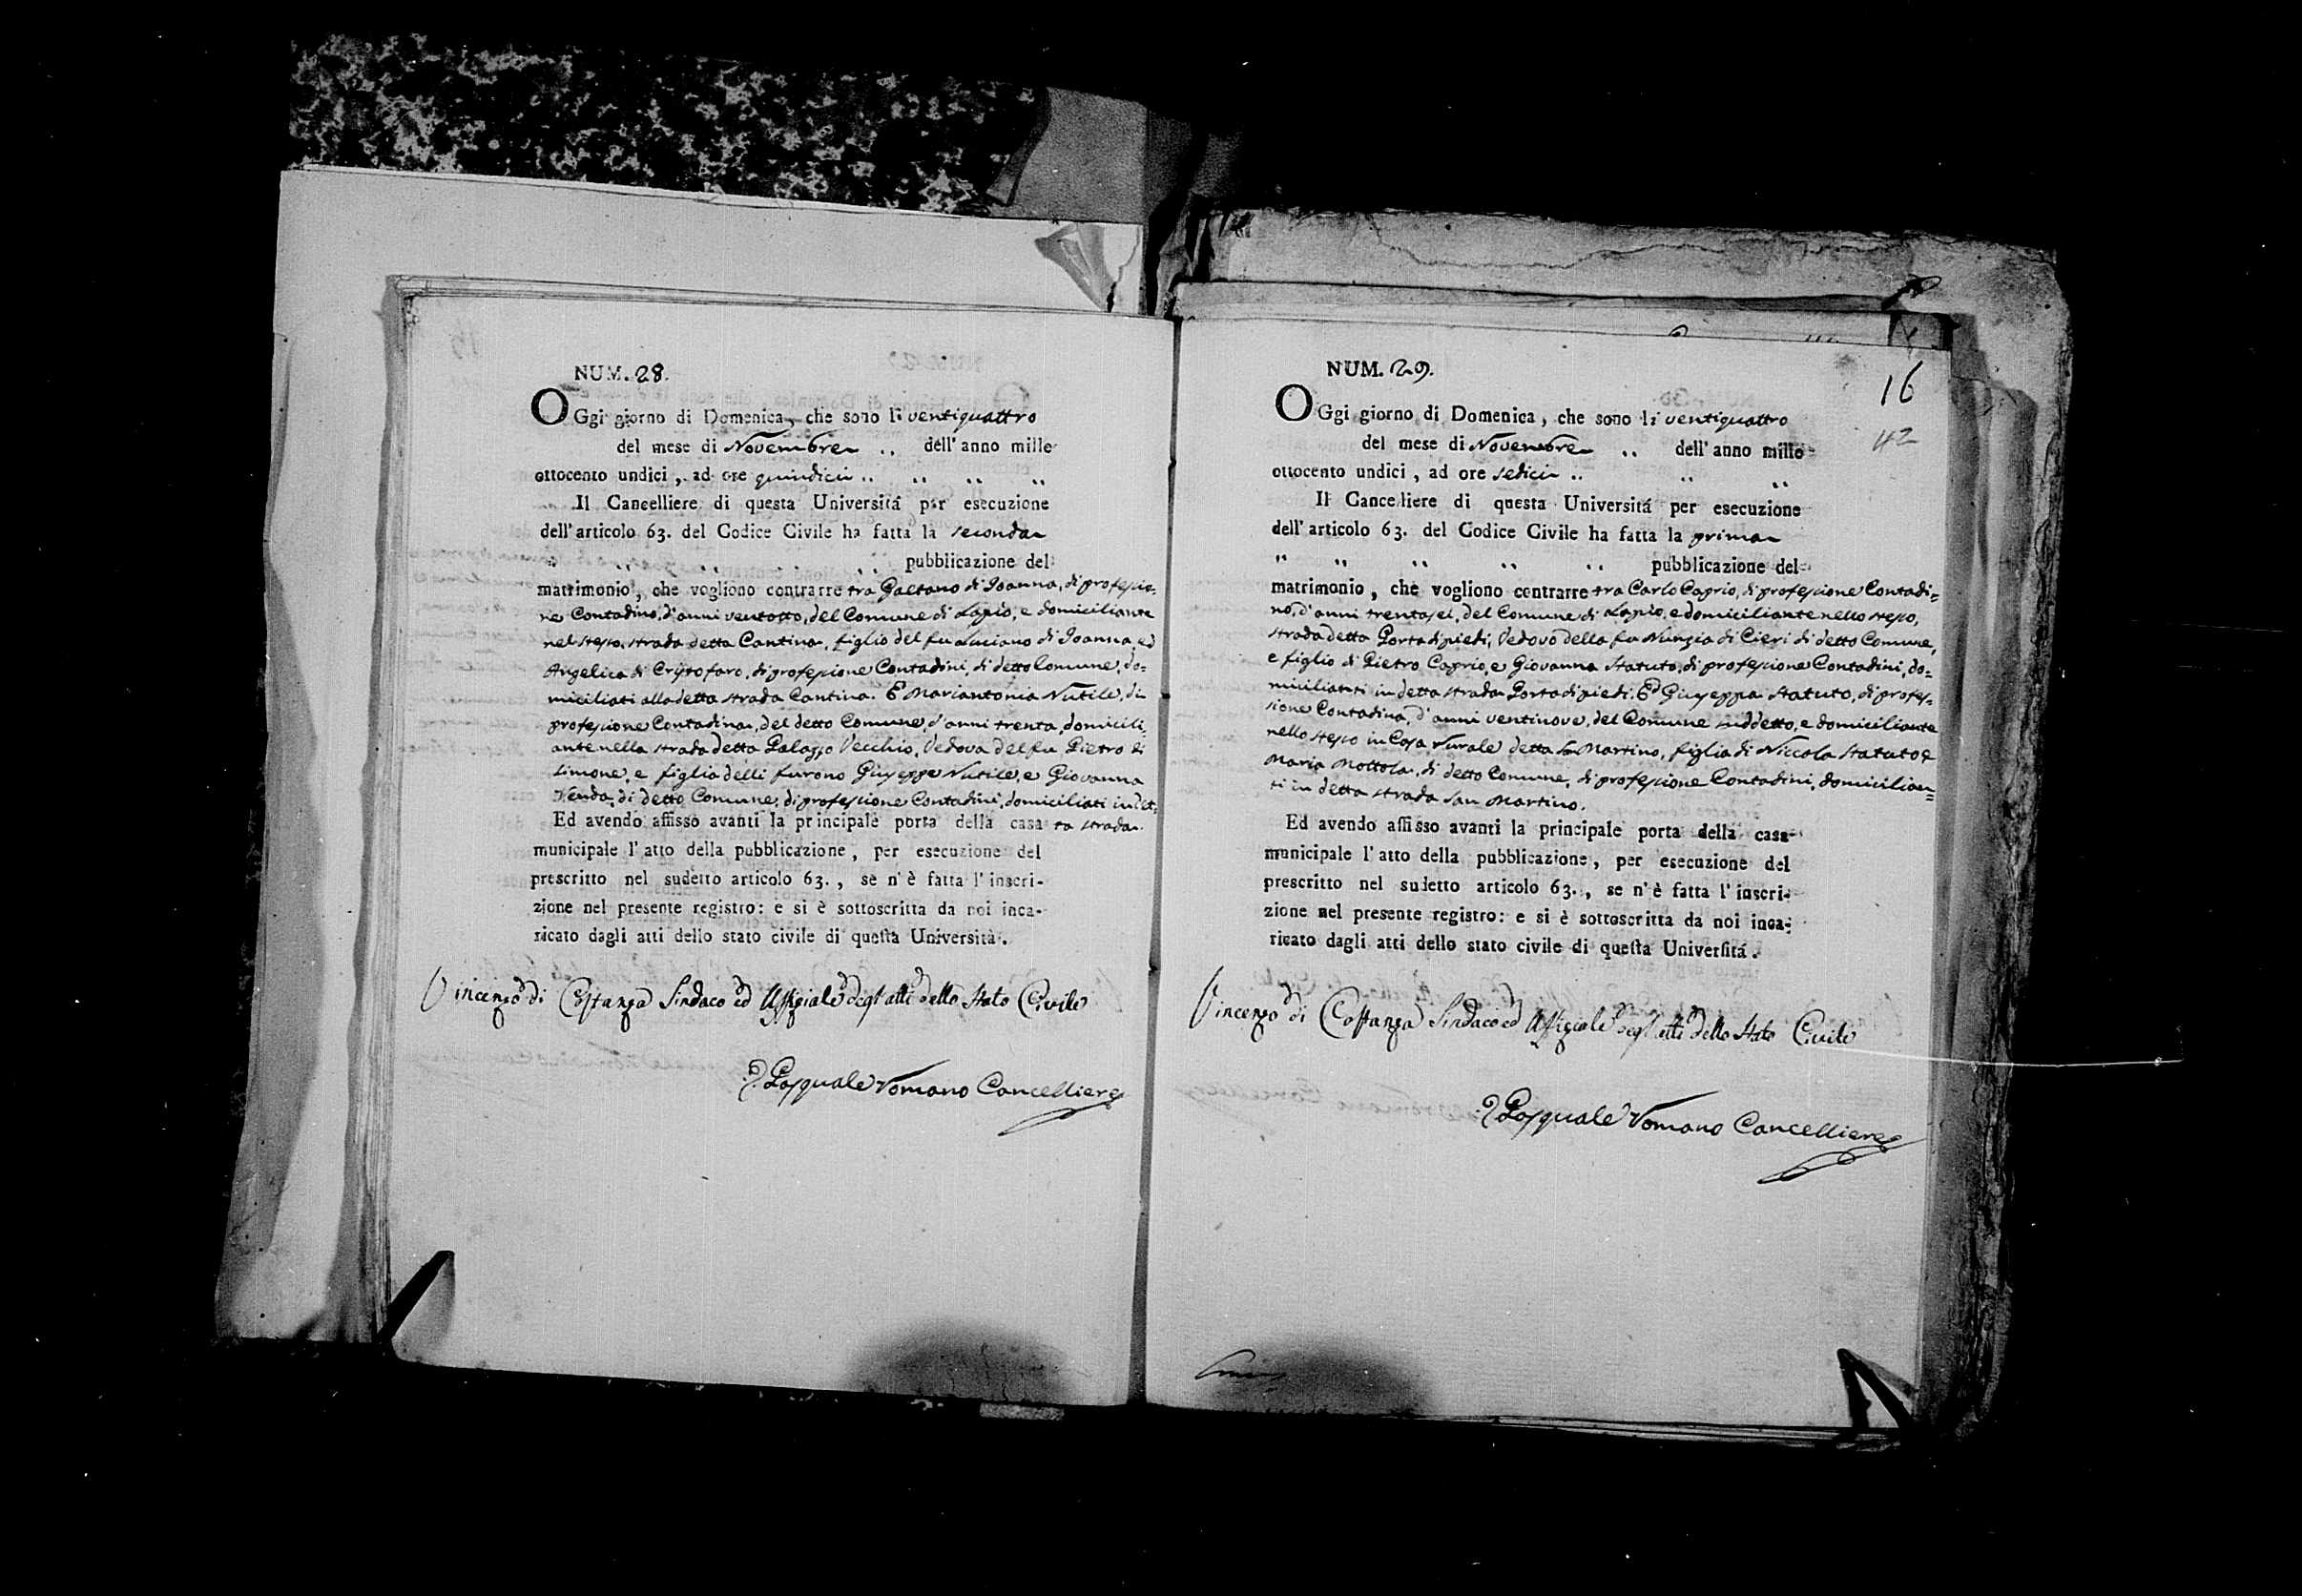 NUM. 28.
OGgi giorno di Domenica, che sono li ventiquattro
del mese di Novembre .. dell' anno mille
ottocento undici, ad ore quindici .. .. .. ..
Il Cancelliere di questa Universitá per esecuzione
dell' articolo 63. del Codice Civile ha fatta la seconda
.. .. .. .. pubblicazione del
matrimonio, che vogliono contrarre tra Gaetano di Ioanna, di professio=
ne Contadino, d'anni ventotto, del Comune di Lapio, e domiciliante
nel stesso, strada detta Cantina, figlio del fu Luciano di Ioanna, ed
Angelica di Cristofaro, di professione Contadini, di detto Comune, do=
miciliati alla detta strada Cantina. E Mariantonia Nutile, di
professione Contadina, del detto Comune, d'anni trenta, domicili=
ante nella strada detta Palazzo Vecchio, Vedova del fu Pietro di
Simone, e figlia delli furono Giuseppe Nutile, e Giovanna
di detto Comune, di professione Contadini, domiciliati in det=
Ed avendo affisso avanti la principale porta della casa ta strada.
municipale l' atto della pubblicazione, per esecuzione del
prescritto nel sudetto articolo 63., se n' è fatta l' inscri-
zione nel presente registro: e si è sottoscritta da noi inca-
ricato dagli atti dello stato civile di questa Università.
Vincenzo di Costanza Sindaco ed Uffiziale degl' atti dello Stato Civile
Pasquale Romano Cancelliere
16
42
NUM. 29.
OGgi giorno di Domenica, che sono li ventiquattro
del mese di Novembre .. dell' anno mille
ottocento undici, ad ore sedici .. .. ..
Il Cancelliere di questa Universitá per esecuzione
dell' articolo 63. del Codice Civile ha fatta la prima
.. .. .. .. pubblicazione del
matrimonio, che vogliono contrarre tra Carlo Caprio, di professione Contadi=
no, d'anni trentasei, del Comune di Lapio, e domiciliante nello stesso,
strada detta Porta di piedi, Vedovo della fu Nunzia di Cieri di detto Comune,
e figlio di Pietro Caprio, e Giovanna Statuto, di professione Contadini, do=
miciliati in detta strada Porta di piedi. Ed Giuseppa Statuto, di profes=
sione Contadina, d'anni ventinove, del Comune suddetto, e domiciliante
nello stesso in Casa Rurale detta San Martino, figlia di Niccola Statuto e
Maria Mottola, di detto Comune, di professione Contadini, domicilian=
ti in detta strada San Martino.
Ed avendo affisso avanti la principale porta della casa
municipale l' atto della pubblicazione, per esecuzione del
prescritto nel sudetto articolo 63., se n' è fatta l' inscri-
zione nel presente registro: e si è sottoscritta da noi inca-
ricato dagli atti dello stato civile di questa Universitá.
Vincenzo di Costanza Sindaco ed Uffiziale degl' atti dello Stato Civile
Pasquale Romano Cancelliere